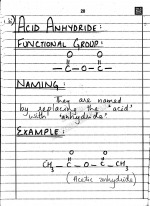 28
ACID ANHYDRIDE:
FUNCTIONAL GROUP:
O O
– C – O – C –
NAMING:
they are named
by replacing the 'acid'
with 'anhydride'
EXAMPLE:
O O
CH3 – C – O – C – CH3
(Acetic anhydride)